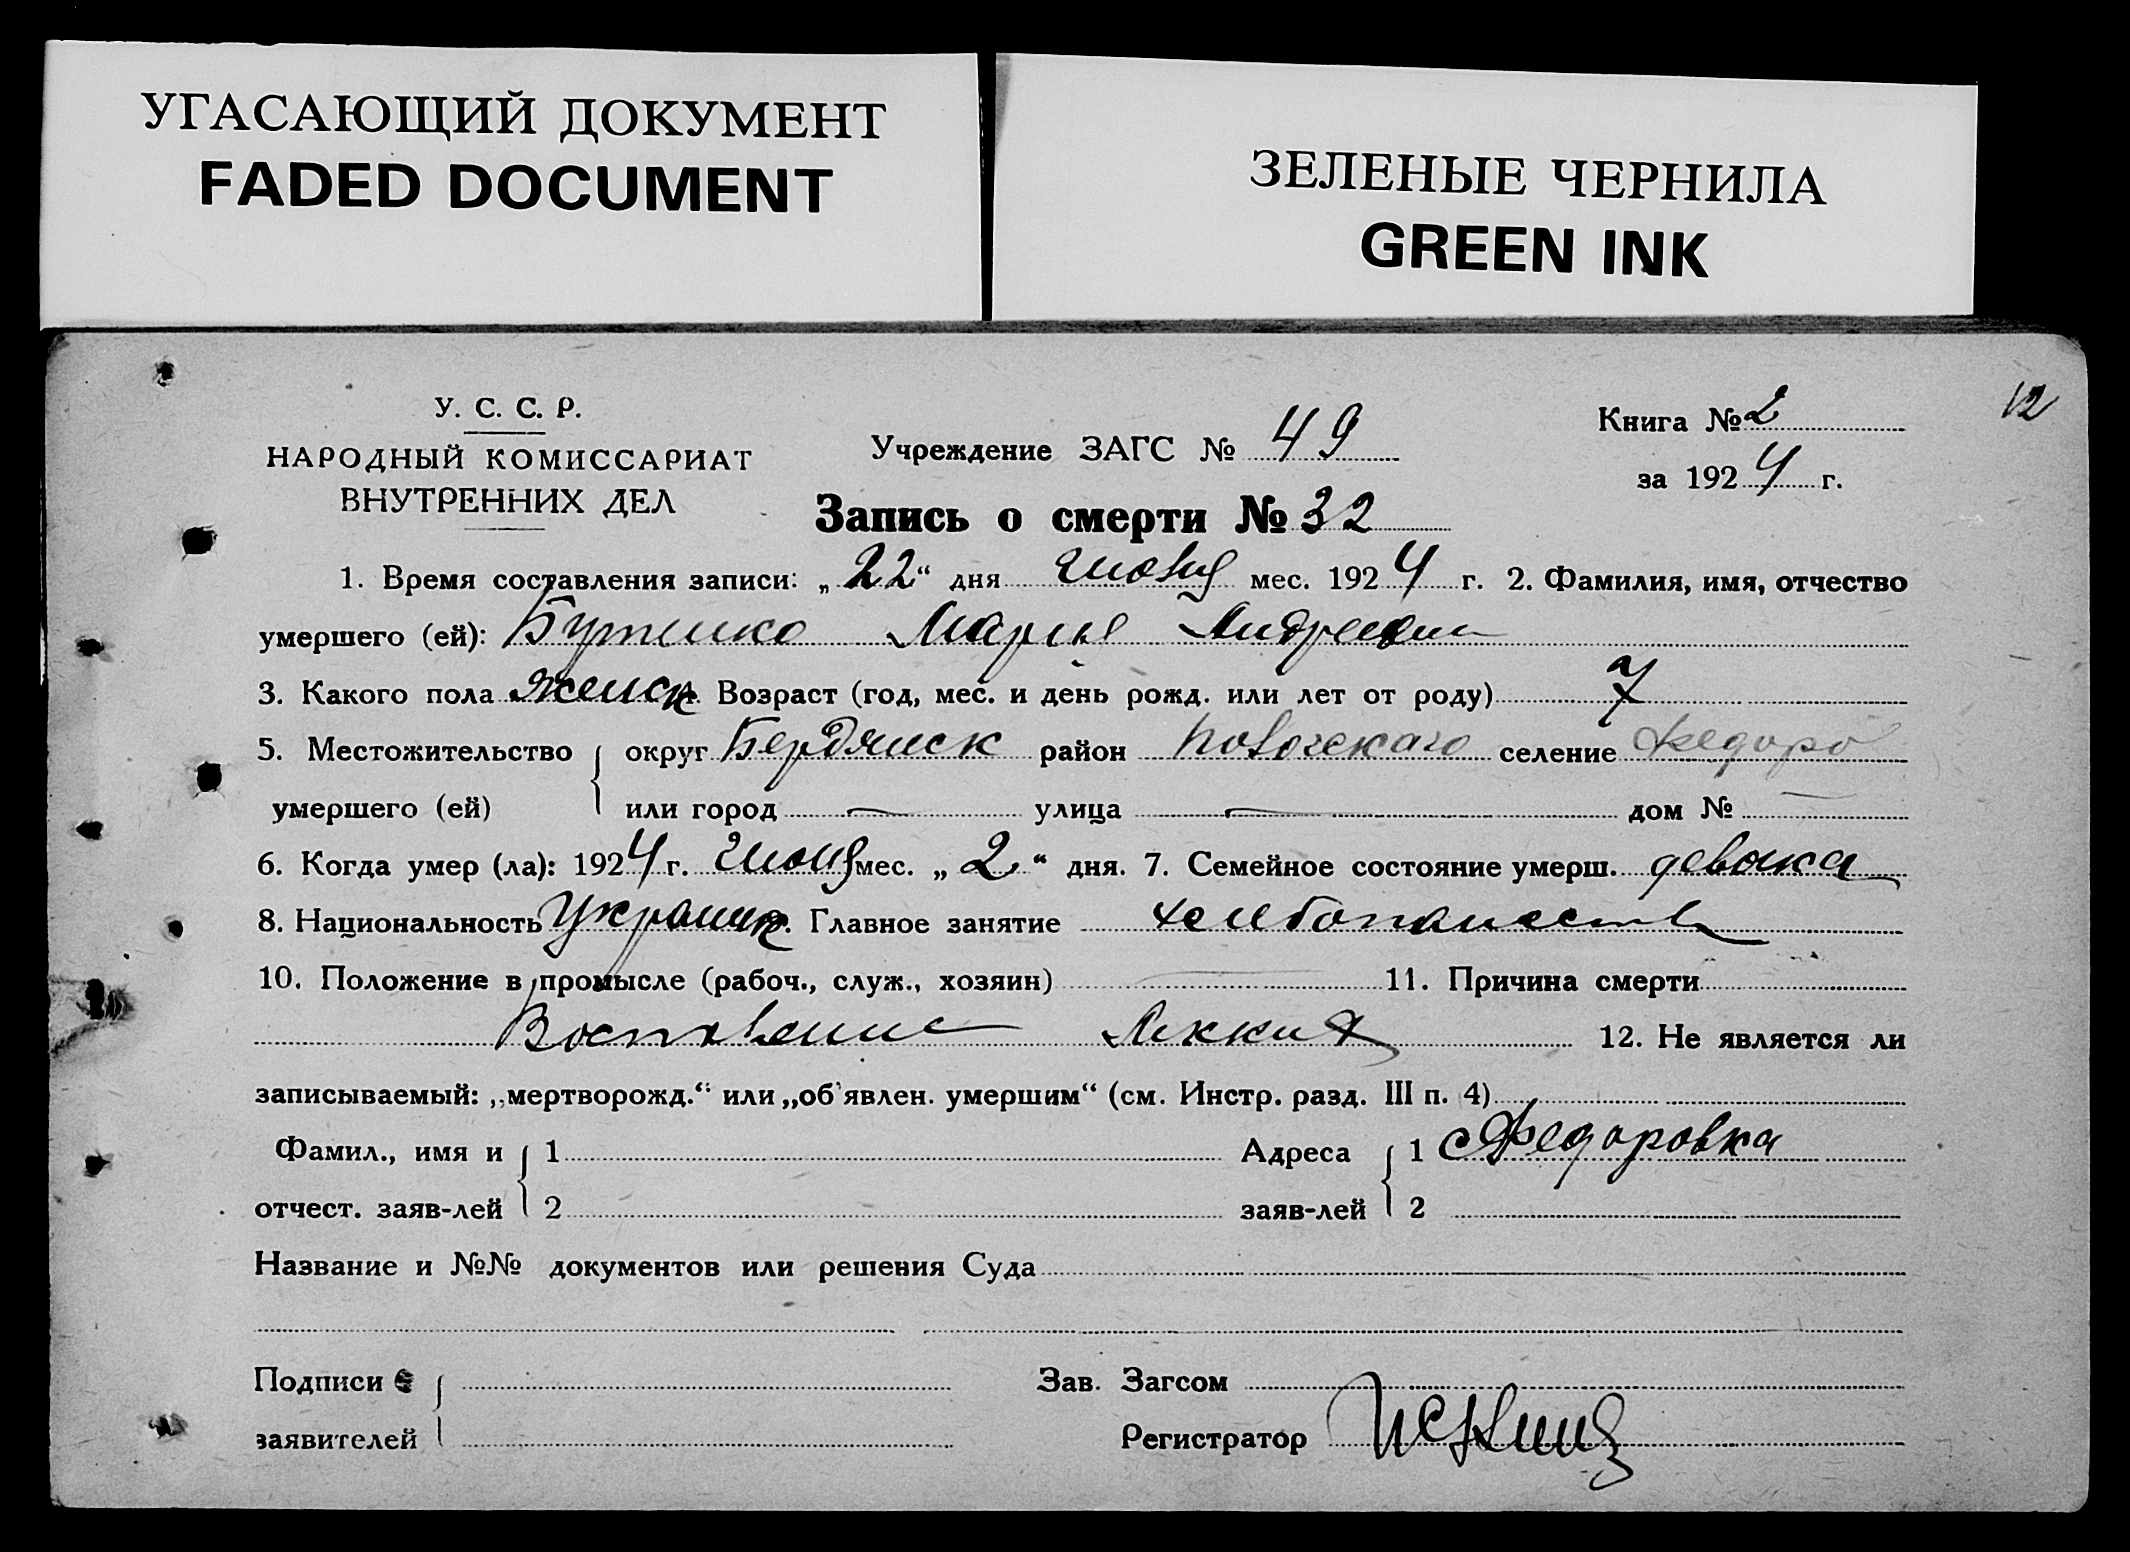 УГАСАЮЩИЙ ДОКУМЕНТ
FADED DOCUMENT
ЗЕЛЕНЫЕ ЧЕРНИЛА
GREEN INK
12
У. С. С. Р.
НАРОДНЫЙ КОМИССАРИАТ
ВНУТРЕННИХ ДЕЛ
Учреждение ЗАГС № 49
Книга № 2
за 1924 г.
Запись о смерти № 32
1. Время составления записи: „22“ дня Июня мес. 1924 г. 2. Фамилия, имя, отчество
умершего (ей): Бутенко Мария Андреевн
3. Какого пола женск 4. Возраст (год, мес. и день рожд. или лет от роду) 7
5. Местожительство округ Бердянск район селение Федоро
умершего (ей) или город — улица — дом № —
6. Когда умер (ла): 1924 г. Июня мес. „2“ дня. 7. Семейное состояние умерш. девочка
8. Национальность Украинк 9. Главное занятие хлебопашеств
10. Положение в промысле (рабоч., служ., хозяин) — 11. Причина смерти
Воспаление 12. Не является ли
записываемый: „мертворожд.“ или „об'явлен. умершим“ (см. Инстр. разд. III п. 4)
Фамил., имя и 1 Адреса 1 с Федоровка
отчест. заяв-лей 2 заяв-лей 2
Название и №№ документов или решения Суда
Подписи Зав. Загсом
заявителей Регистратор